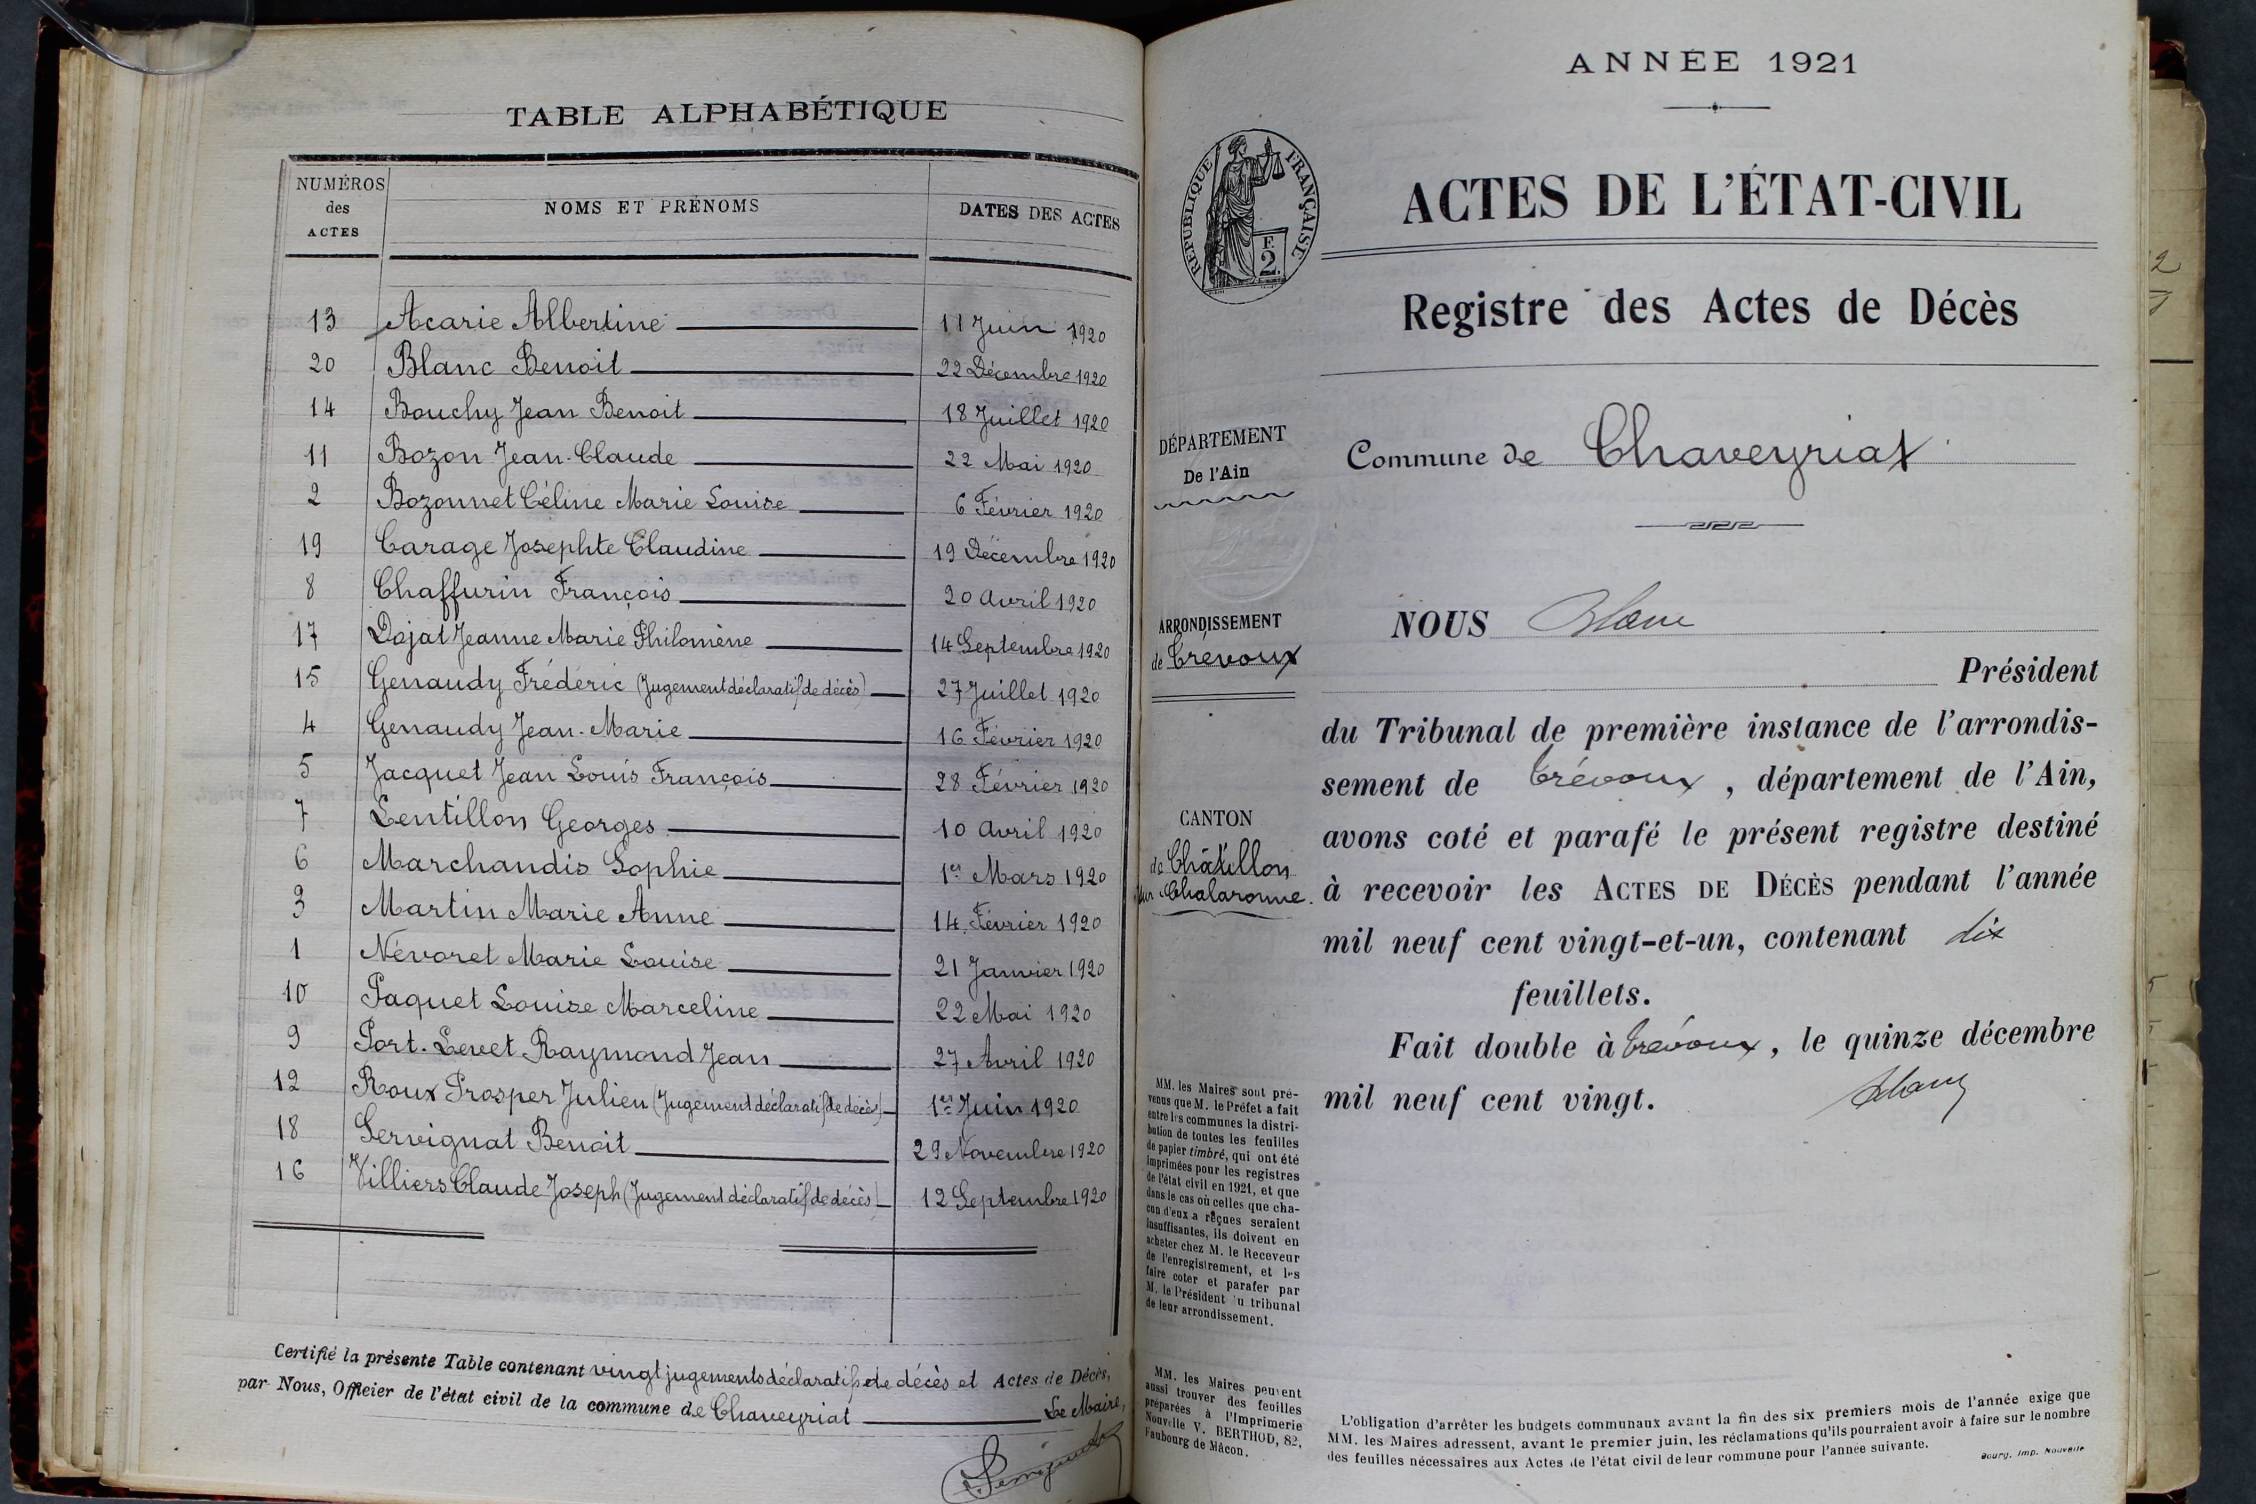 TABLE ALPHABÉTIQUE
NUMÉROS des ACTES NOMS ET PRÉNOMS DATES DES ACTES
13 Acarie Albertine 11 Juin 1920
20 Blanc Benoit 22 Décembre 1920
14 Bouchy Jean Benoit 18 Juillet 1920
11 Bozon Jean-Claude 22 Mai 1920
2 Bozonnet Céline Marie Louise 6 Février 1920
19 Carage Josephte Claudine 19 Décembre 1920
8 Chaffurin François 20 Avril 1920
17 Dojat Jeanne Marie Philomène 14 Septembre 1920
15 Genaudy Frédéric (Jugement déclaratif de décès) 27 Juillet 1920
4 Genaudy Jean-Marie 16 Février 1920
5 Jacquet Jean Louis François 28 Février 1920
7 Lentillon Georges 10 Avril 1920
6 Marchandis Sophie 1er Mars 1920
3 Martin Marie Anne 14 Février 1920
1 Névoret Marie Louise 21 Janvier 1920
10 Paquet Louise Marceline 22 Mai 1920
9 Port-Levet Raymond Jean 27 Avril 1920
12 Roux Prosper Julien (Jugement déclaratif de décès) 1er Juin 1920
18 Servignat Benoit 29 Novembre 1920
16 Villiers Claude Joseph (Jugement déclaratif de décès) 12 Septembre 1920
Certifié la présente Table contenant vingt jugements déclaratifs de décès et Actes de Décès,
par Nous, Officier de l'état civil de la commune de Chaveyriat Le Maire,
ANNÉE 1921
RÉPUBLIQUE FRANÇAISE
F.
2
ACTES DE L'ÉTAT-CIVIL
Registre des Actes de Décès
DÉPARTEMENT
De l'Ain
ARRONDISSEMENT
de Trévoux
CANTON
de Châtillon
sur Chalaronne.
MM. les Maires sont pré-
venus que M. le Préfet a fait
entre les communes la distri-
bution de toutes les feuilles
de papier timbré, qui ont été
imprimées pour les registres
de l'état civil en 1921, et que
dans le cas où celles que cha-
cun d'eux a reçues seraient
insuffisantes, ils doivent en
acheter chez M. le Receveur
de l'enregistrement, et les
faire coter et parafer par
M. le Président du tribunal
de leur arrondissement.
MM. les Maires peuvent
aussi trouver des feuilles
préparées à l'Imprimerie
Nouvelle V. BERTHOD, 82,
Faubourg de Mâcon.
Commune de Chaveyriat
NOUS Blanc
Président
du Tribunal de première instance de l'arrondis-
sement de Trévoux, département de l'Ain,
avons coté et parafé le présent registre destiné
à recevoir les ACTES DE DÉCÈS pendant l'année
mil neuf cent vingt-et-un, contenant dix
feuillets.
Fait double à Trévoux, le quinze décembre
mil neuf cent vingt.
L'obligation d'arrêter les budgets communaux avant la fin des six premiers mois de l'année exige que
MM. les Maires adressent, avant le premier juin, les réclamations qu'ils pourraient avoir à faire sur le nombre
des feuilles nécessaires aux Actes de l'état civil de leur commune pour l'année suivante.
Bourg, Imp. Nouvelle